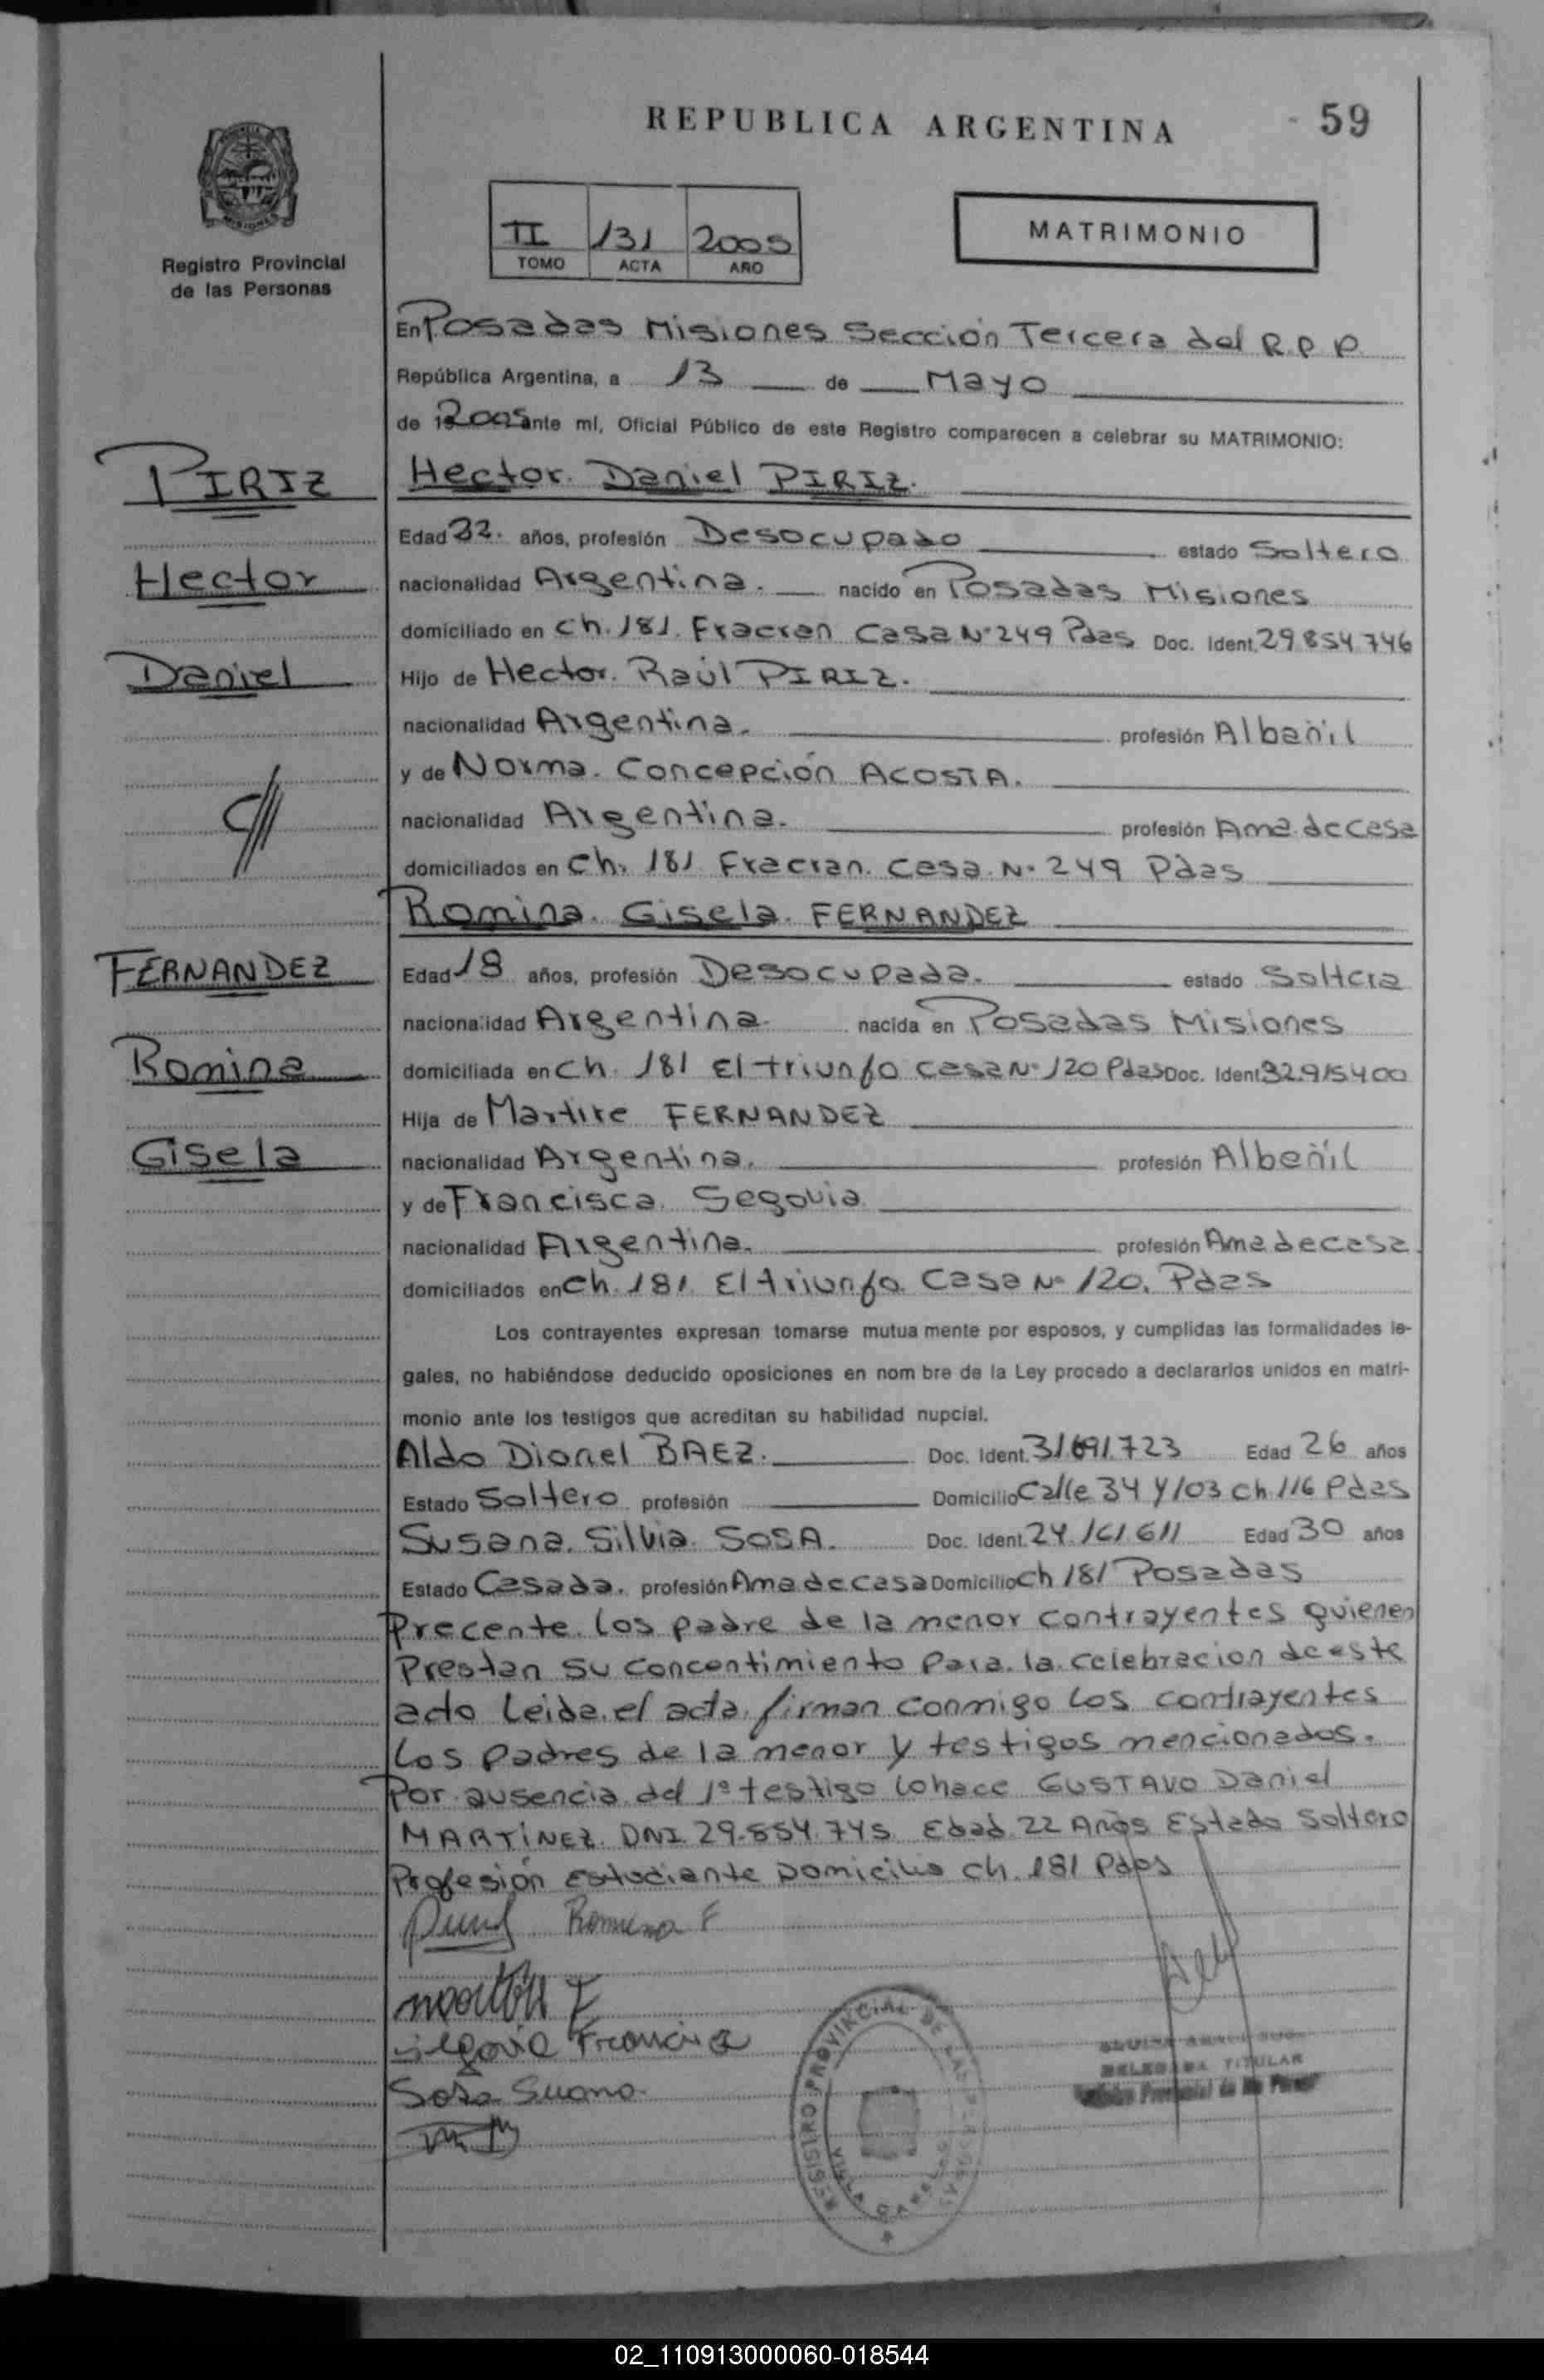 REPUBLICA ARGENTINA
59
Registro Provincial
de las Personas
II 131 2005
TOMO ACTA AÑO
MATRIMONIO
En Posadas Misiones Sección Tercera del R.P.P.
República Argentina, a 13 de Mayo
de 2005 ante mí, Oficial Público de este Registro comparecen a celebrar su MATRIMONIO:
PIRIZ
Hector
Daniel
Hector. Daniel PIRIZ.
Edad 22. años, profesión Desocupado estado Soltero
nacionalidad Argentina. nacido en Posadas Misiones
domiciliado en Ch. 181. Fracran Casa N° 249 Pdas Doc. Ident. 29.854.746
Hijo de Hector. Raúl PIRIZ.
nacionalidad Argentina. profesión Albañil
y de Norma. Concepción ACOSTA.
nacionalidad Argentina. profesión Ama de casa
domiciliados en Ch. 181 Fracran. Casa. N. 249 Pdas
Romina. Gisela. FERNANDEZ
FERNANDEZ
Romina
Gisela
Edad 18 años, profesión Desocupada. estado Soltera
nacionalidad Argentina. nacida en Posadas Misiones
domiciliada en Ch. 181 El triunfo casa N° 120 Pdas Doc. Ident. 32.915400
Hija de Martire FERNANDEZ
nacionalidad Argentina. profesión Albañil
y de Francisca. Segovia
nacionalidad Argentina. profesión Ama de casa.
domiciliados en Ch. 181. El triunfo. Casa N° 120. Pdas
Los contrayentes expresan tomarse mutua mente por esposos, y cumplidas las formalidades le-
gales, no habiéndose deducido oposiciones en nom bre de la Ley procedo a declararlos unidos en matri-
monio ante los testigos que acreditan su habilidad nupcial.
Aldo Dionel BAEZ. Doc. Ident. 31.691.723 Edad 26 años
Estado Soltero profesión Domicilio Calle 34 y 103 ch. 116 Pdas
Susana. Silvia. SOSA. Doc. Ident. 24.161.611 Edad 30 años
Estado Casada. profesión Ama de casa Domicilio Ch 181 Posadas
Precente. los padre de la menor contrayentes quienes
Prestan su concentimiento Para. la. celebracion de este
acto Leida. el acta. firman conmigo los contrayentes
Los padres de la menor y testigos mencionados.
Por ausencia del 1° testigo lo hace GUSTAVO Daniel
MARTÍNEZ. DNI. 29.854.745 Edad. 22 Años Estado Soltero
Profesión Estudiante Domicilio Ch. 181 Pdas
Romina F
Segovia Francisca
Sosa Susana
REGISTRO PROVINCIAL DE LAS PERSONAS
DELEGADA TITULAR
02_110913000060-018544